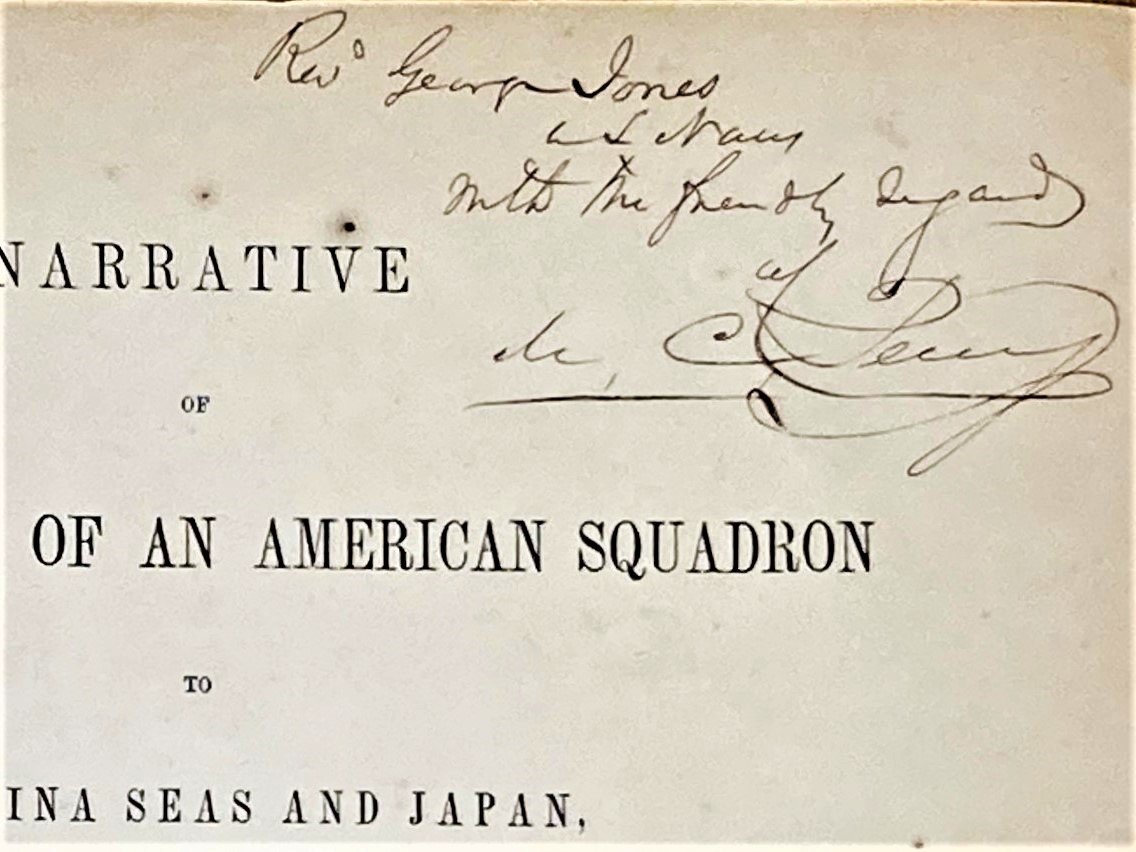 Revd George Jones
U S Navy
With the friendly regards
of
M. C. Perry
NARRATIVE
OF
OF AN AMERICAN SQUADRON
TO
INA SEAS AND JAPAN,